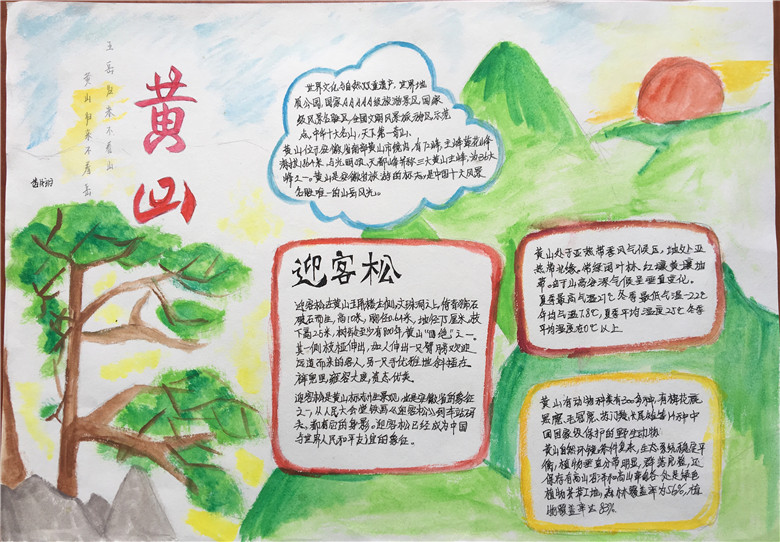 黄山
五岳归来不看山
黄山归来不看岳
世界文化与自然双重遗产,世界地
质公园,国家AAAAA级旅游景区,国家
级风景名胜区,全国文明风景旅游区示范
点,中华十大名山,天下第一奇山。
黄山位于安徽省南部黄山市境内,有72峰,主峰莲花峰
海拔1864米,与光明顶、天都峰并称三大黄山主峰,为36大
峰之一。黄山是安徽省旅游的标志,是中国十大风景
名胜唯一的山岳风光。
迎客松
迎客松在黄山玉屏楼左侧,文殊洞之上,倚青狮石
破石而生,高10米,胸径0.64米,地径75厘米,枝
下高2.5米,树龄至少有800年,黄山"四绝"之一。
其一侧枝桠伸出,如人伸出一只臂膀欢迎
远道而来的客人,另一只手优雅地斜插在
裤兜里,雍容大度,姿态优美。
迎客松是黄山标志性景观,也是安徽省的象征
之一,从人民大会堂铁画《迎客松》到车站码
头,都有它的身影。迎客松已经成为中国
与世界人民和平友谊的象征。
黄山处于亚热带季风气候区,地处中亚
热带北缘、常绿阔叶林、红壤黄壤地
带。由于山高谷深气候呈垂直变化。
夏季最高气温27℃冬季最低气温-22℃
年均气温7.8℃,夏季平均温度25℃冬季
平均温度在0℃以上。
黄山有动物种类有300多种,有梅花鹿
黑麂、毛冠鹿、苏门羚
中国国家级保护的野生动物。
黄山自然环境条件复杂,生态系统稳定平
衡,植物垂直分带明显,群落完整,还
保存有高山沼泽和高山草甸各一处,是绿色
植物荟萃之地,森林覆盖率为56%,植
被覆盖率达83%